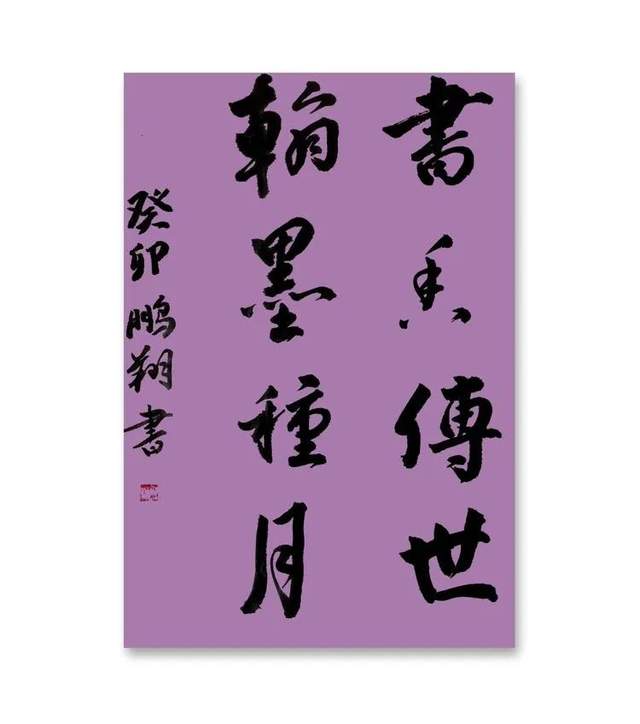 書香傳世
翰墨種月
癸卯鵬翔書